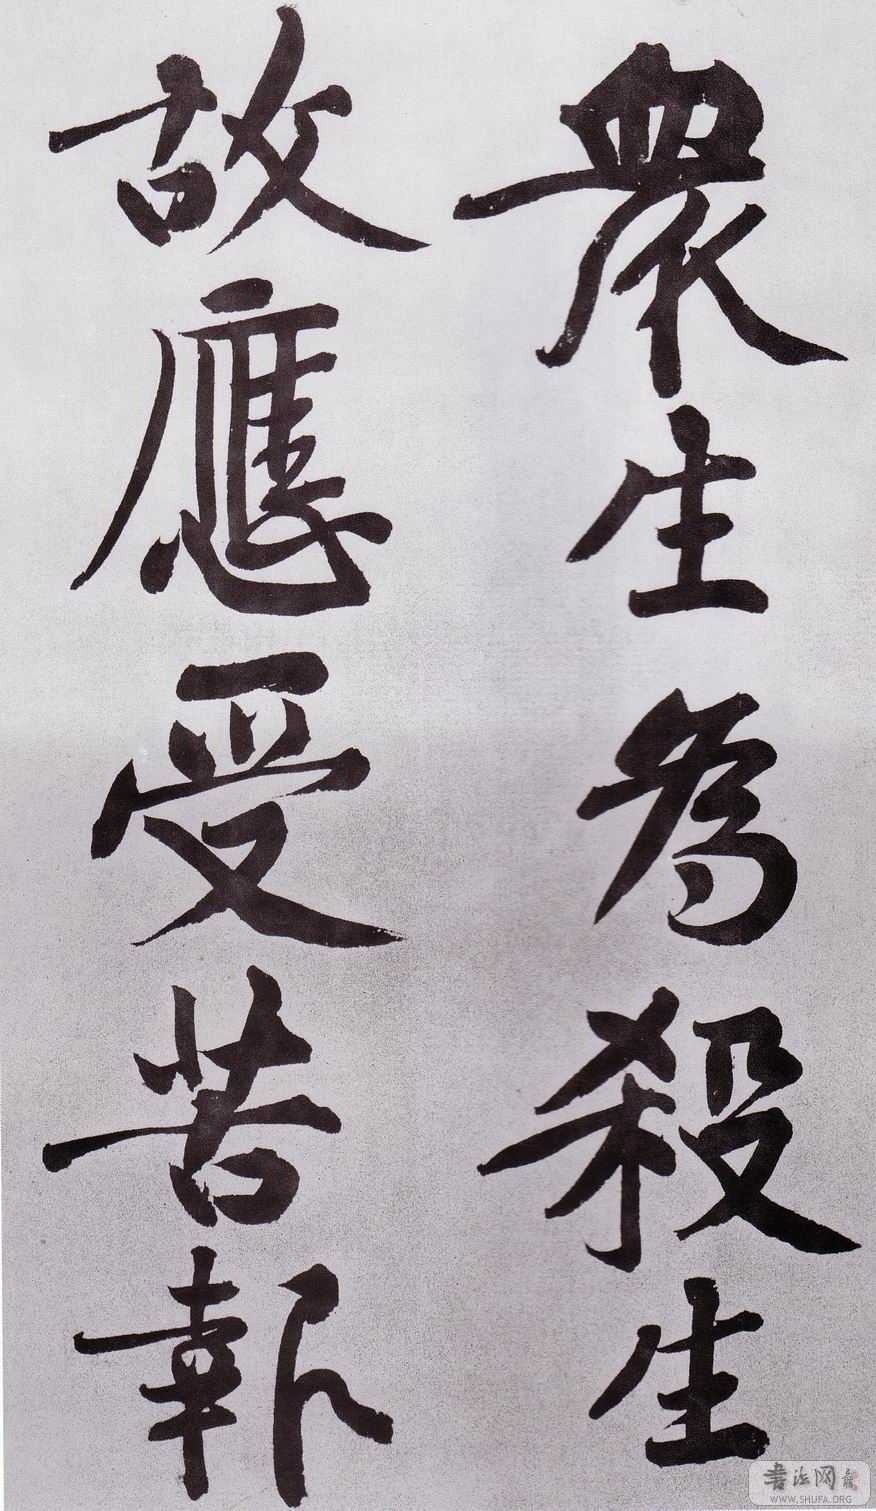 衆生為殺生
故應受苦報
書法网
WWW.SHUFA.ORG